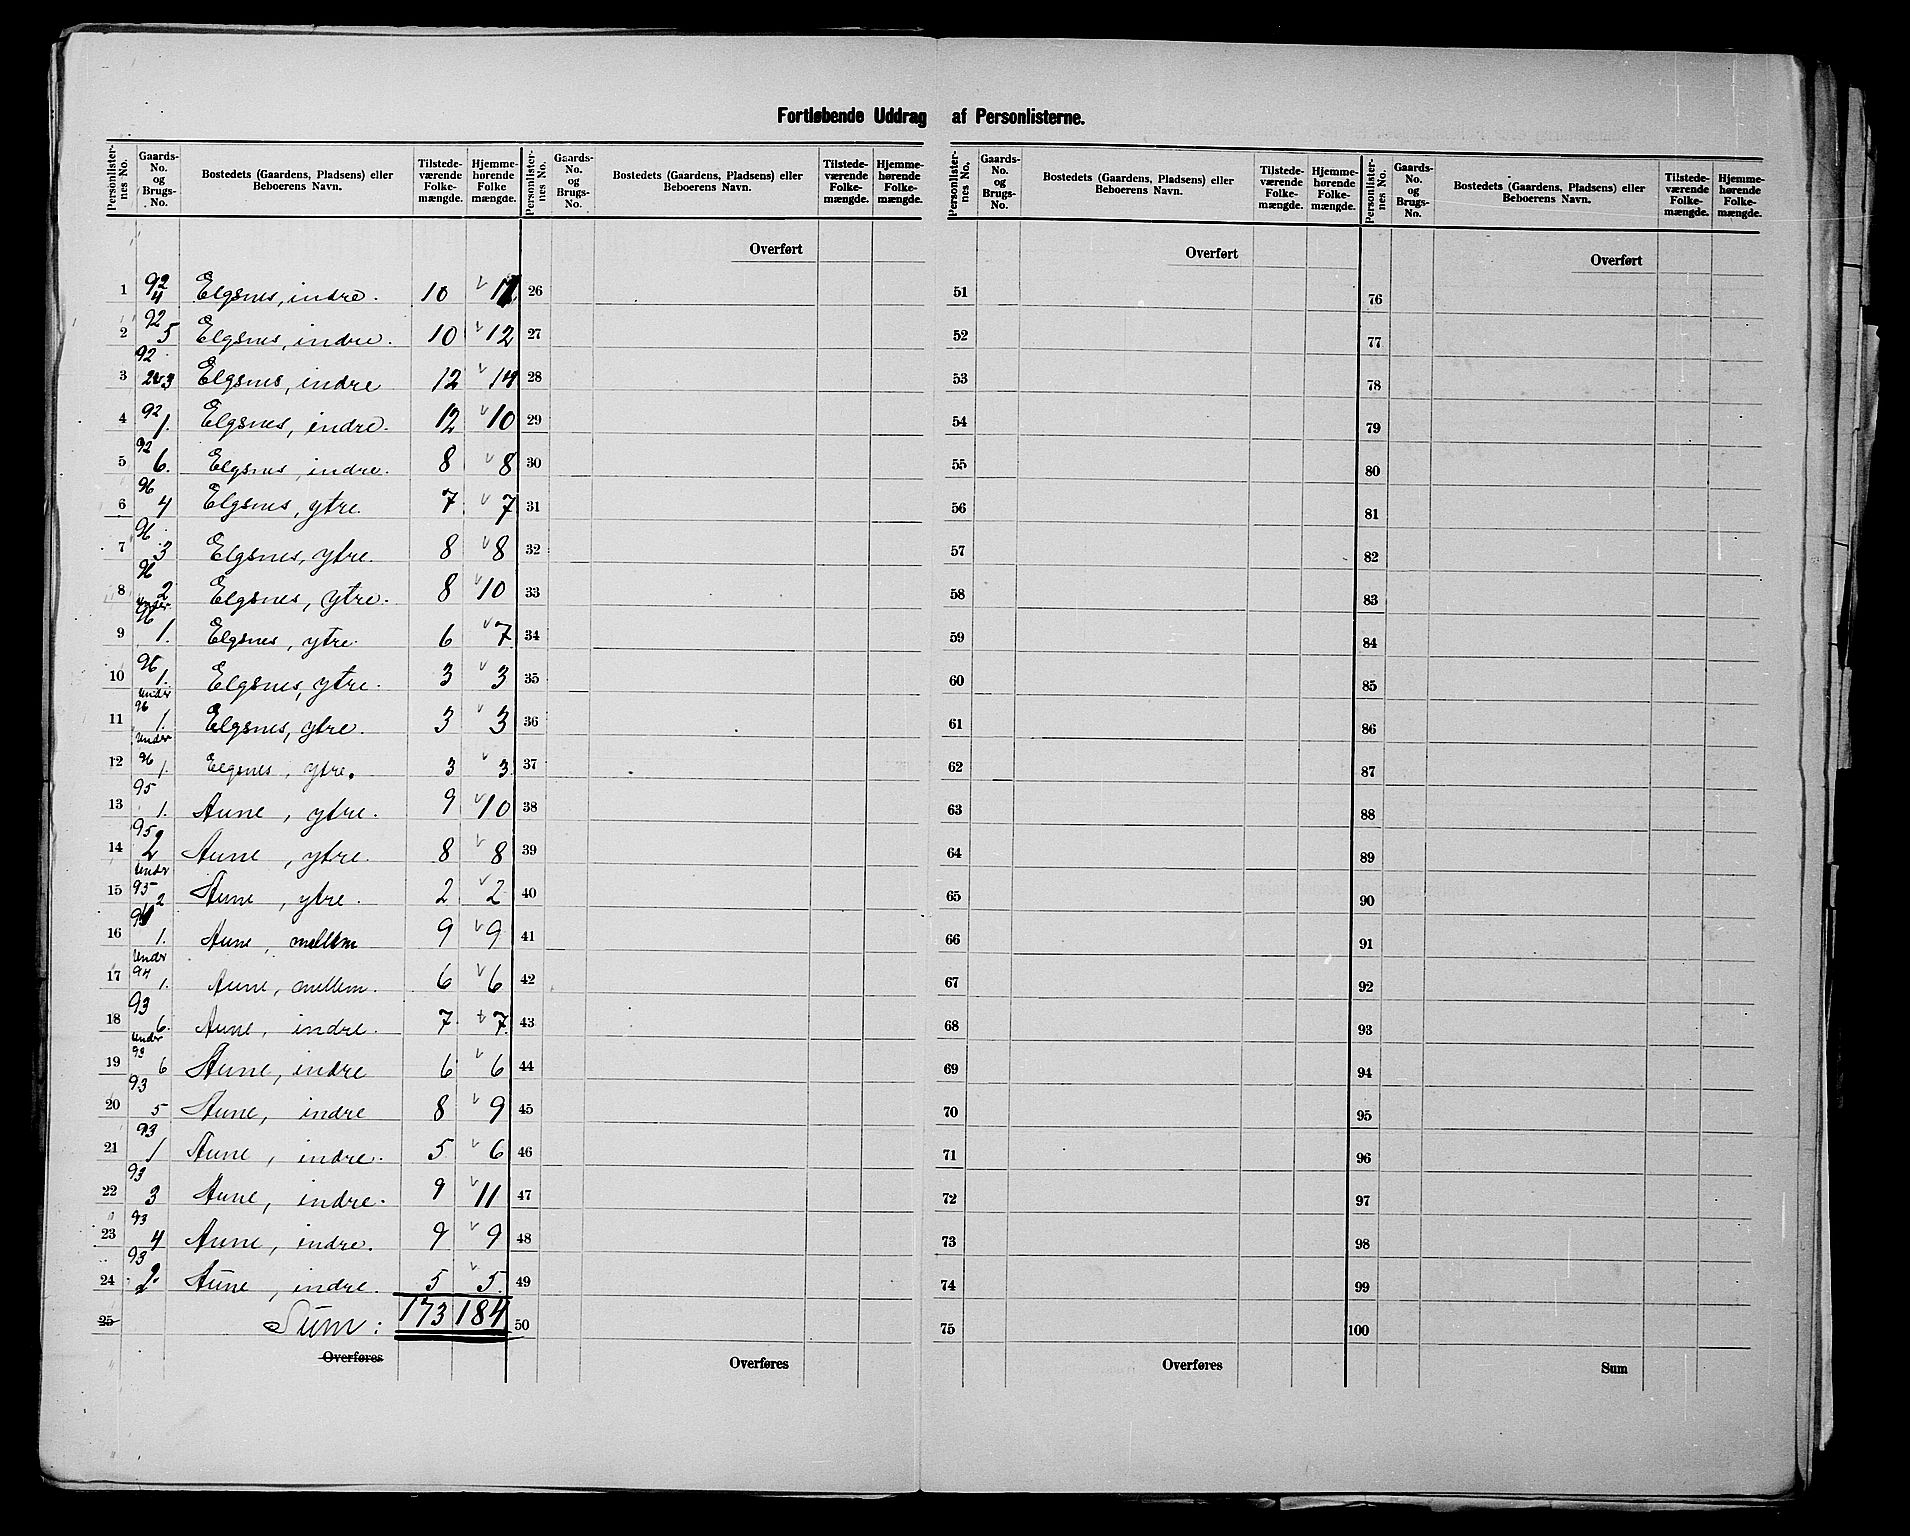 Fortløbende Uddrag af Personlisterne.
Personlisternes No. Gaards-No. og Brugs-No. Bostedets (Gaardens, Pladsens) eller Beboerens Navn. Tilstedeværende Folkemængde. Hjemmehørende Folkemængde.
Personlisternes No. Gaards-No. og Brugs-No. Bostedets (Gaardens, Pladsens) eller Beboerens Navn. Tilstedeværende Folkemængde. Hjemmehørende Folkemængde.
Personlisternes No. Gaards-No. og Brugs-No. Bostedets (Gaardens, Pladsens) eller Beboerens Navn. Tilstedeværende Folkemængde. Hjemmehørende Folkemængde.
Personlisternes No. Gaards-No. og Brugs-No. Bostedets (Gaardens, Pladsens) eller Beboerens Navn. Tilstedeværende Folkemængde. Hjemmehørende Folkemængde.
Overført Overført Overført
1 92 4 Elgsnes, indre. 10 11 26 51 76
2 92 5 Elgsnes, indre. 10 12 27 52 77
3 92 2&3 Elgsnes, indre 12 14 28 53 78
4 92 1. Elgsnes, indre. 12 10 29 54 79
5 92 6. Elgsnes, indre. 8 8 30 55 80
6 96 4 Elgsnes, ytre. 7 7 31 56 81
7 96 3 Elgsnes, ytre. 8 8 32 57 82
8 96 2 Elgsnes, ytre. 8 10 33 58 83
9 under 96 1. Elgsnes, ytre. 6 7 34 59 84
10 96 1. Elgsnes, ytre. 3 3 35 60 85
11 under 96 1. Elgsnes, ytre. 3 3 36 61 86
12 under 96 1. Elgsnes, ytre. 3 3 37 62 87
13 95 1. Aune, ytre. 9 10 38 63 88
14 95 2 Aune, ytre. 8 8 39 64 89
15 under 95 2 Aune, ytre. 2 2 40 65 90
16 94 1. Aune, mellem 9 9 41 66 91
17 under 94 1. Aune, mellem. 6 6 42 67 92
18 93 6. Aune, indre. 7 7 43 68 93
19 under 93 6 Aune, indre 6 6 44 69 94
20 93 5 Aune, indre 8 9 45 70 95
21 93 1 Aune, indre. 5 6 46 71 96
22 93 3 Aune, indre. 9 11 47 72 97
23 93 4 Aune, indre. 9 9 48 73 98
24 93 2. Aune, indre. 5 5 49 74 99
25 Sum: 173 184 50 75 100
Overføres Overføres Overføres Sum